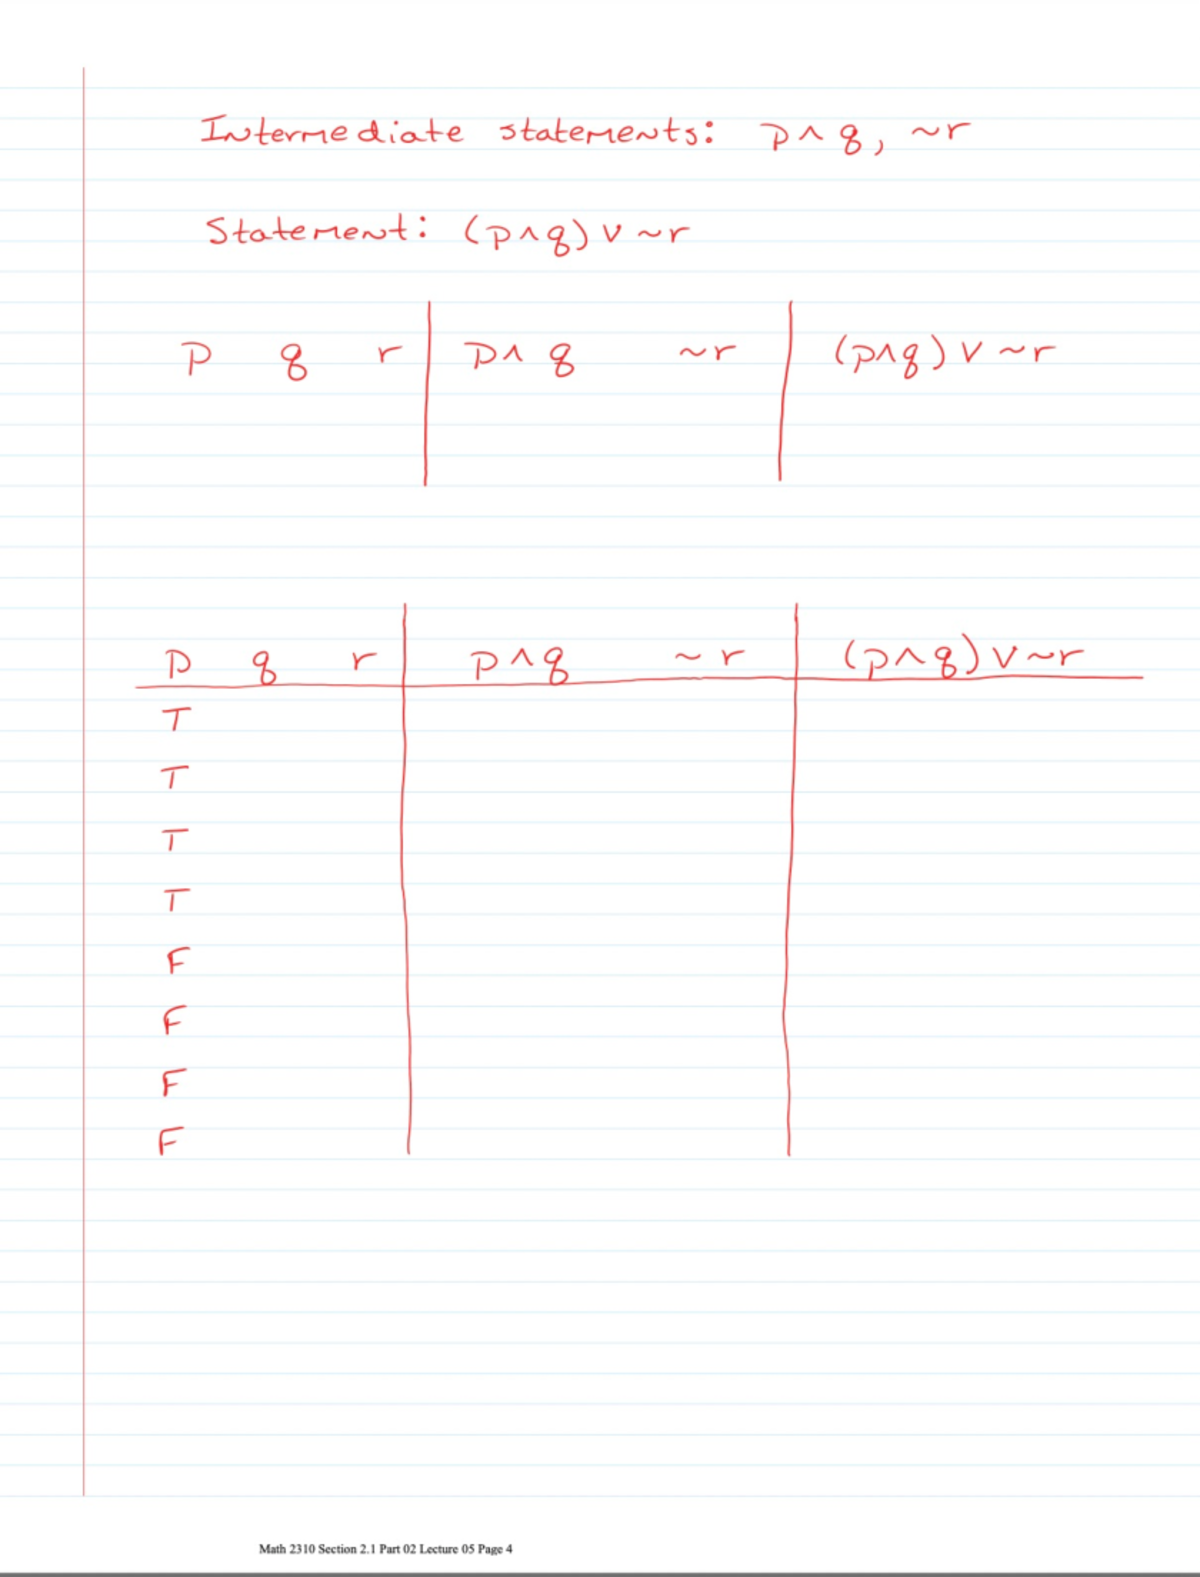 Intermediate statements: p ∧ q, ~r
Statement: (p∧q) ∨ ~r
p q r p∧ q ~r (p∧q) ∨ ~r
p q r p∧q ~ r (p∧q) ∨ ~r
T
T
T
T
F
F
F
F
Math 2310 Section 2.1 Part 02 Lecture 05 Page 4